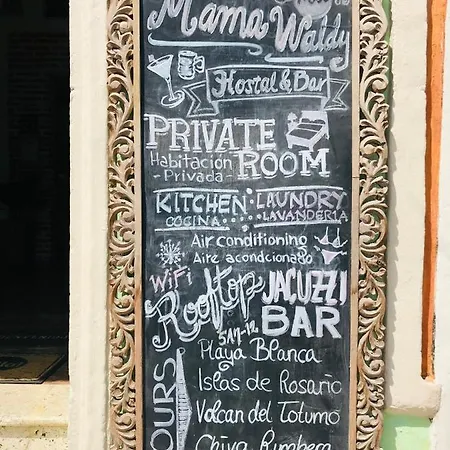 Mama Waldy
Hostal & Bar
PRIVATE ROOM
Habitación
- Privada -
KITCHEN · LAUNDRY
COCINA ..... LAVANDERIA
Air conditioning
Aire acondcionado
WiFi
Rooftop
JACUZZI
BAR
5A7-12
TOURS
Playa Blanca
Islas de Rosario
Volcan del Totumo
Chiva Rumbera